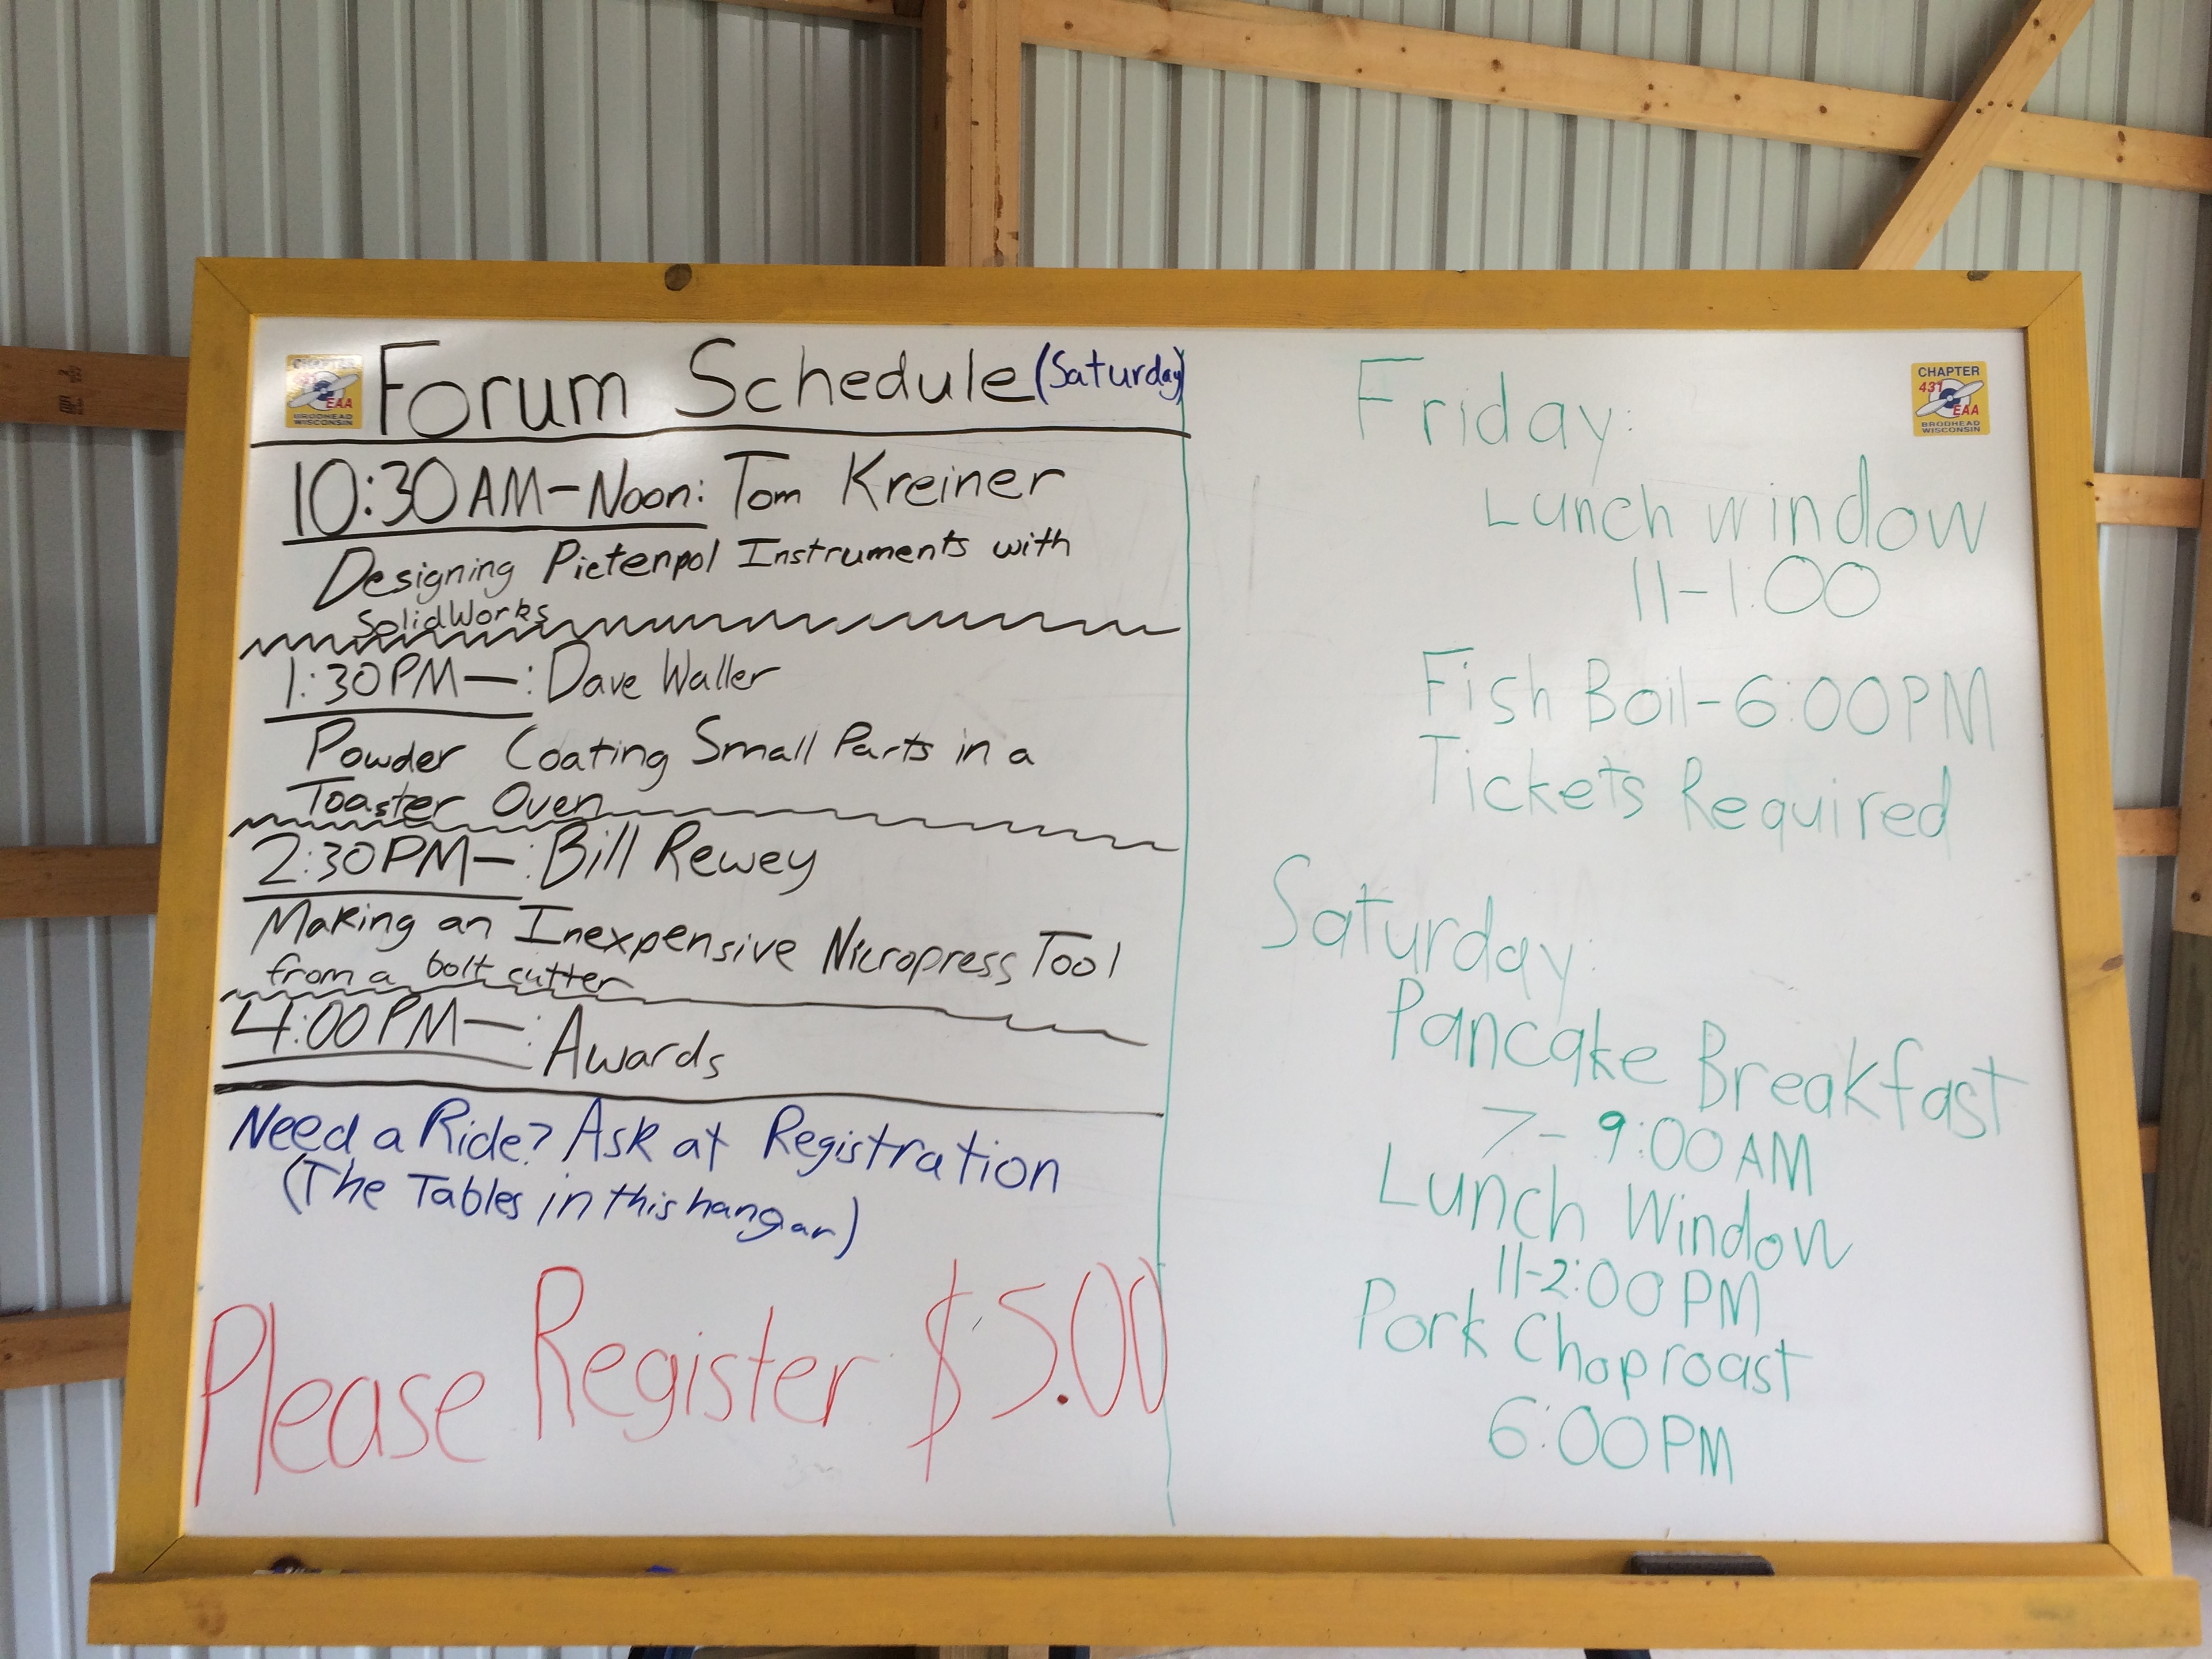 CHAPTER
431
EAA
BRODHEAD
WISCONSIN
Forum Schedule (Saturday)
10:30 AM-Noon: Tom Kreiner
Designing Pietenpol Instruments with
SolidWorks
1:30PM—: Dave Waller
Powder Coating Small Parts in a
Toaster Oven
2:30PM—: Bill Rewey
Making an Inexpensive Nicropress Tool
from a bolt cutter
4:00PM—: Awards
Need a Ride? Ask at Registration
(The Tables in this hangar)
Please Register $5.00
CHAPTER
431
EAA
BRODHEAD
WISCONSIN
Friday:
Lunch window
11-1:00
Fish Boil-6:00PM
Tickets Required
Saturday:
Pancake Breakfast
7-9:00AM
Lunch Window
11-2:00PM
Pork Chop roast
6:00PM